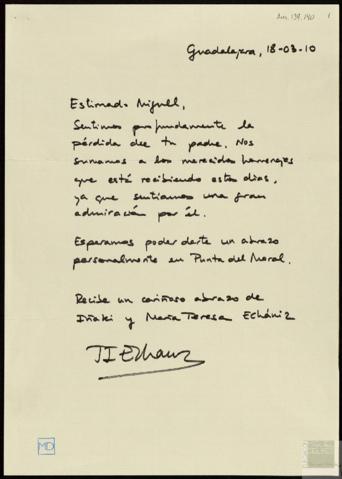 Guadalajara, 18-03-10
Estimado Miguel,
Sentimos profundamente la
pérdida de tu padre. Nos
sumamos a los merecidos homenajes
que está recibiendo estos días,
ya que sentíamos una gran
admiración por él.
Esperamos poder darte un abrazo
personalmente en Punta del Moral.
Recibe un cariñoso abrazo de
Iñaki y María Teresa Echániz
MD